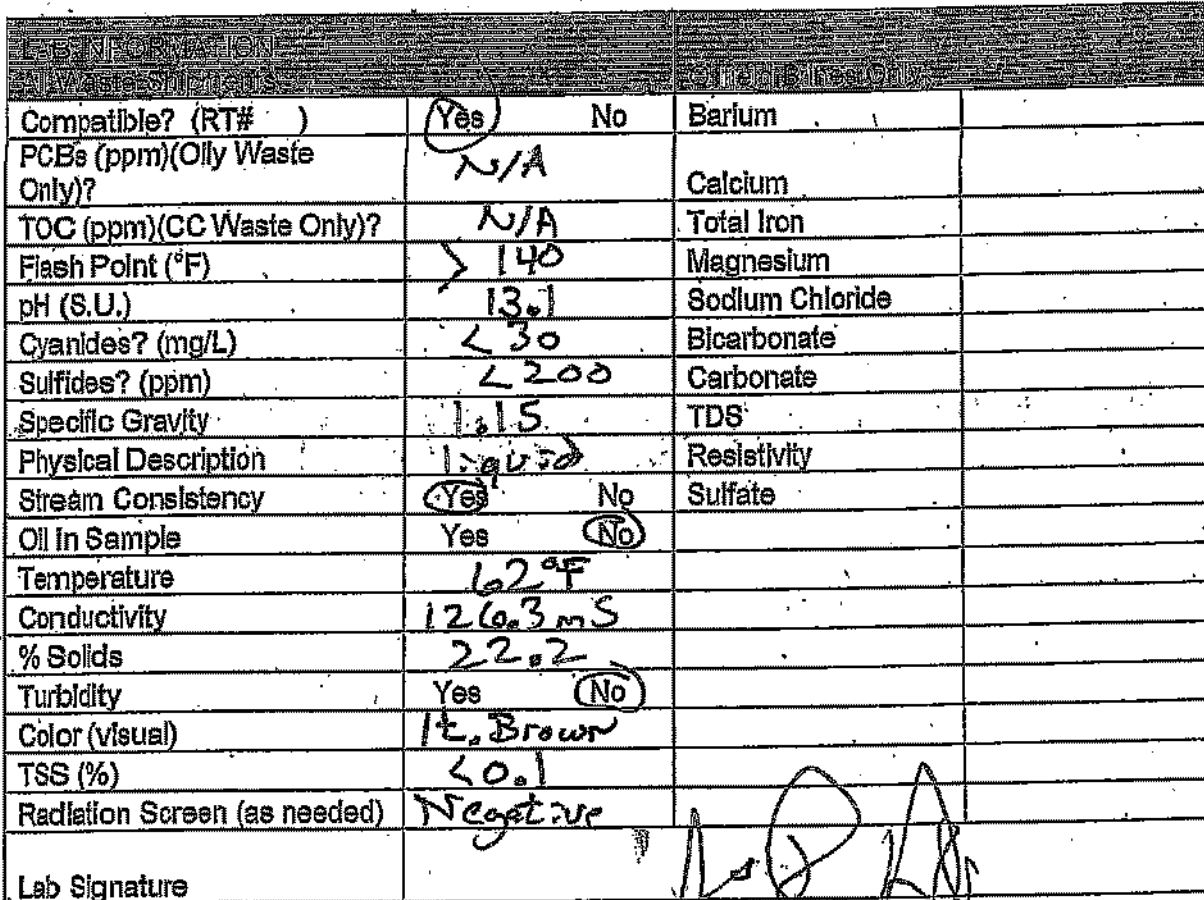 LAB INFORMATION
All Waste Shipments
Oilfield Brines Only
Compatible? (RT# ) Yes No Barium
PCBs (ppm)(Oily Waste
Only)? N/A Calcium
TOC (ppm)(CC Waste Only)? N/A Total Iron
Flash Point (°F) > 140 Magnesium
pH (S.U.) 13.1 Sodium Chloride
Cyanides? (mg/L) <30 Bicarbonate
Sulfides? (ppm) <200 Carbonate
Specific Gravity 1.15 TDS
Physical Description liquid Resistivity
Stream Consistency Yes No Sulfate
Oil In Sample Yes No
Temperature 62°F
Conductivity 126.3 mS
% Solids 22.2
Turbidity Yes No
Color (visual) lt. Brown
TSS (%) <0.1
Radiation Screen (as needed) Negative
Lab Signature